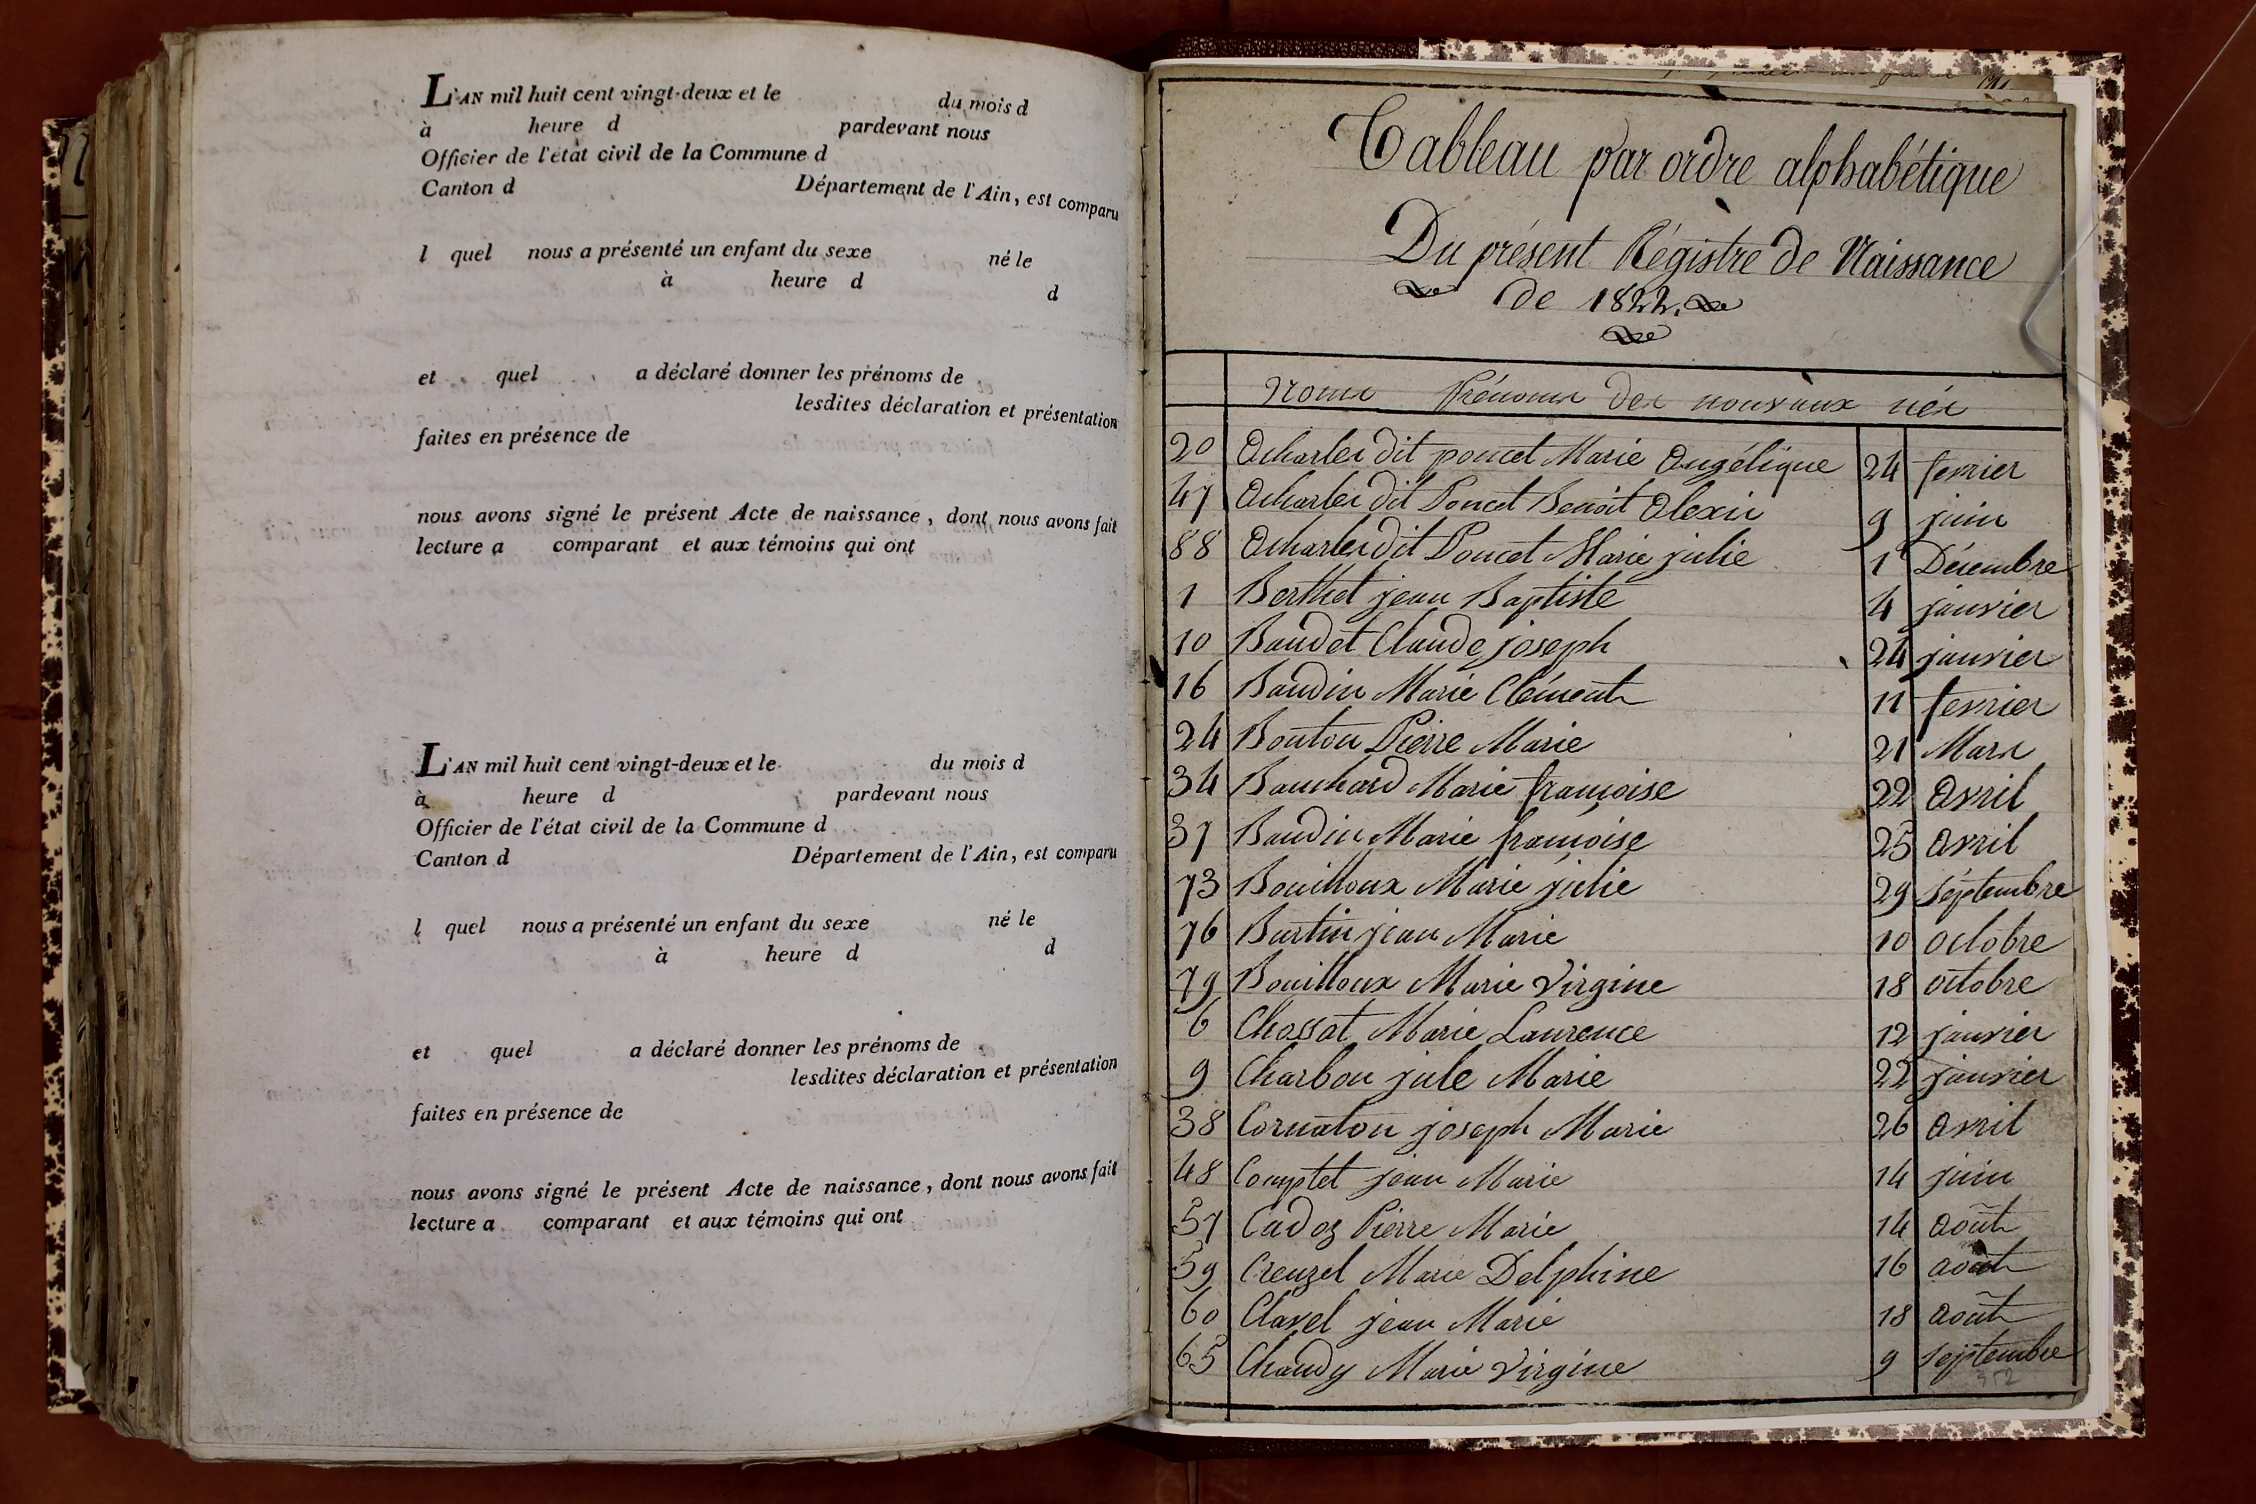 L'AN mil huit cent vingt-deux et le du mois d
à heure d pardevant nous
Officier de l'état civil de la Commune d
Canton d Département de l'Ain, est comparu
l quel nous a présenté un enfant du sexe né le
à heure d d
et quel a déclaré donner les prénoms de
lesdites déclaration et présentation
faites en présence de
nous avons signé le présent Acte de naissance, dont nous avons fait
lecture a comparant et aux témoins qui ont
L'AN mil huit cent vingt-deux et le du mois d
à heure d pardevant nous
Officier de l'état civil de la Commune d
Canton d Département de l'Ain, est comparu
l quel nous a présenté un enfant du sexe né le
à heure d d
et quel a déclaré donner les prénoms de
lesdites déclaration et présentation
faites en présence de
nous avons signé le présent Acte de naissance, dont nous avons fait
lecture a comparant et aux témoins qui ont
Tableau par ordre alphabétique
Du présent Régistre de Naissance
de 1822.
Noms Prénoms des nouveaux nés
20 Acharles dit poncet Marie Angélique 24 fevrier
47 Acharles dit Poncet Benoit Alexis 9 juin
88 Acharles dit Poncet Marie julie 1 Décembre
1 Berthet jean Baptiste 4 janvier
10 Baudet Claude joseph 24 janvier
16 Baudin Marie Clément 11 fevrier
24 Bouton Pierre Marie 21 Mars
34 Bauchard Marie françoise 22 Avril
37 Baudin Marie françoise 25 Avril
73 Bouilloux Marie julie 29 séptembre
76 Burtin jean Marie 10 octobre
79 Bouilloux Marie Virgine 18 octobre
6 Chossat Marie Laurence 12 janvier
9 Charbon jule Marie 22 janvier
38 Cornaton joseph Marie 26 Avril
48 Comptet jean Marie 14 juin
57 Cadoz Pierre Marie 14 Août
59 Creuzel Marie Delphine 16 Août
60 Clavel jean Marie 18 Août
65 Chaudy Marie Virgine 9 septembre